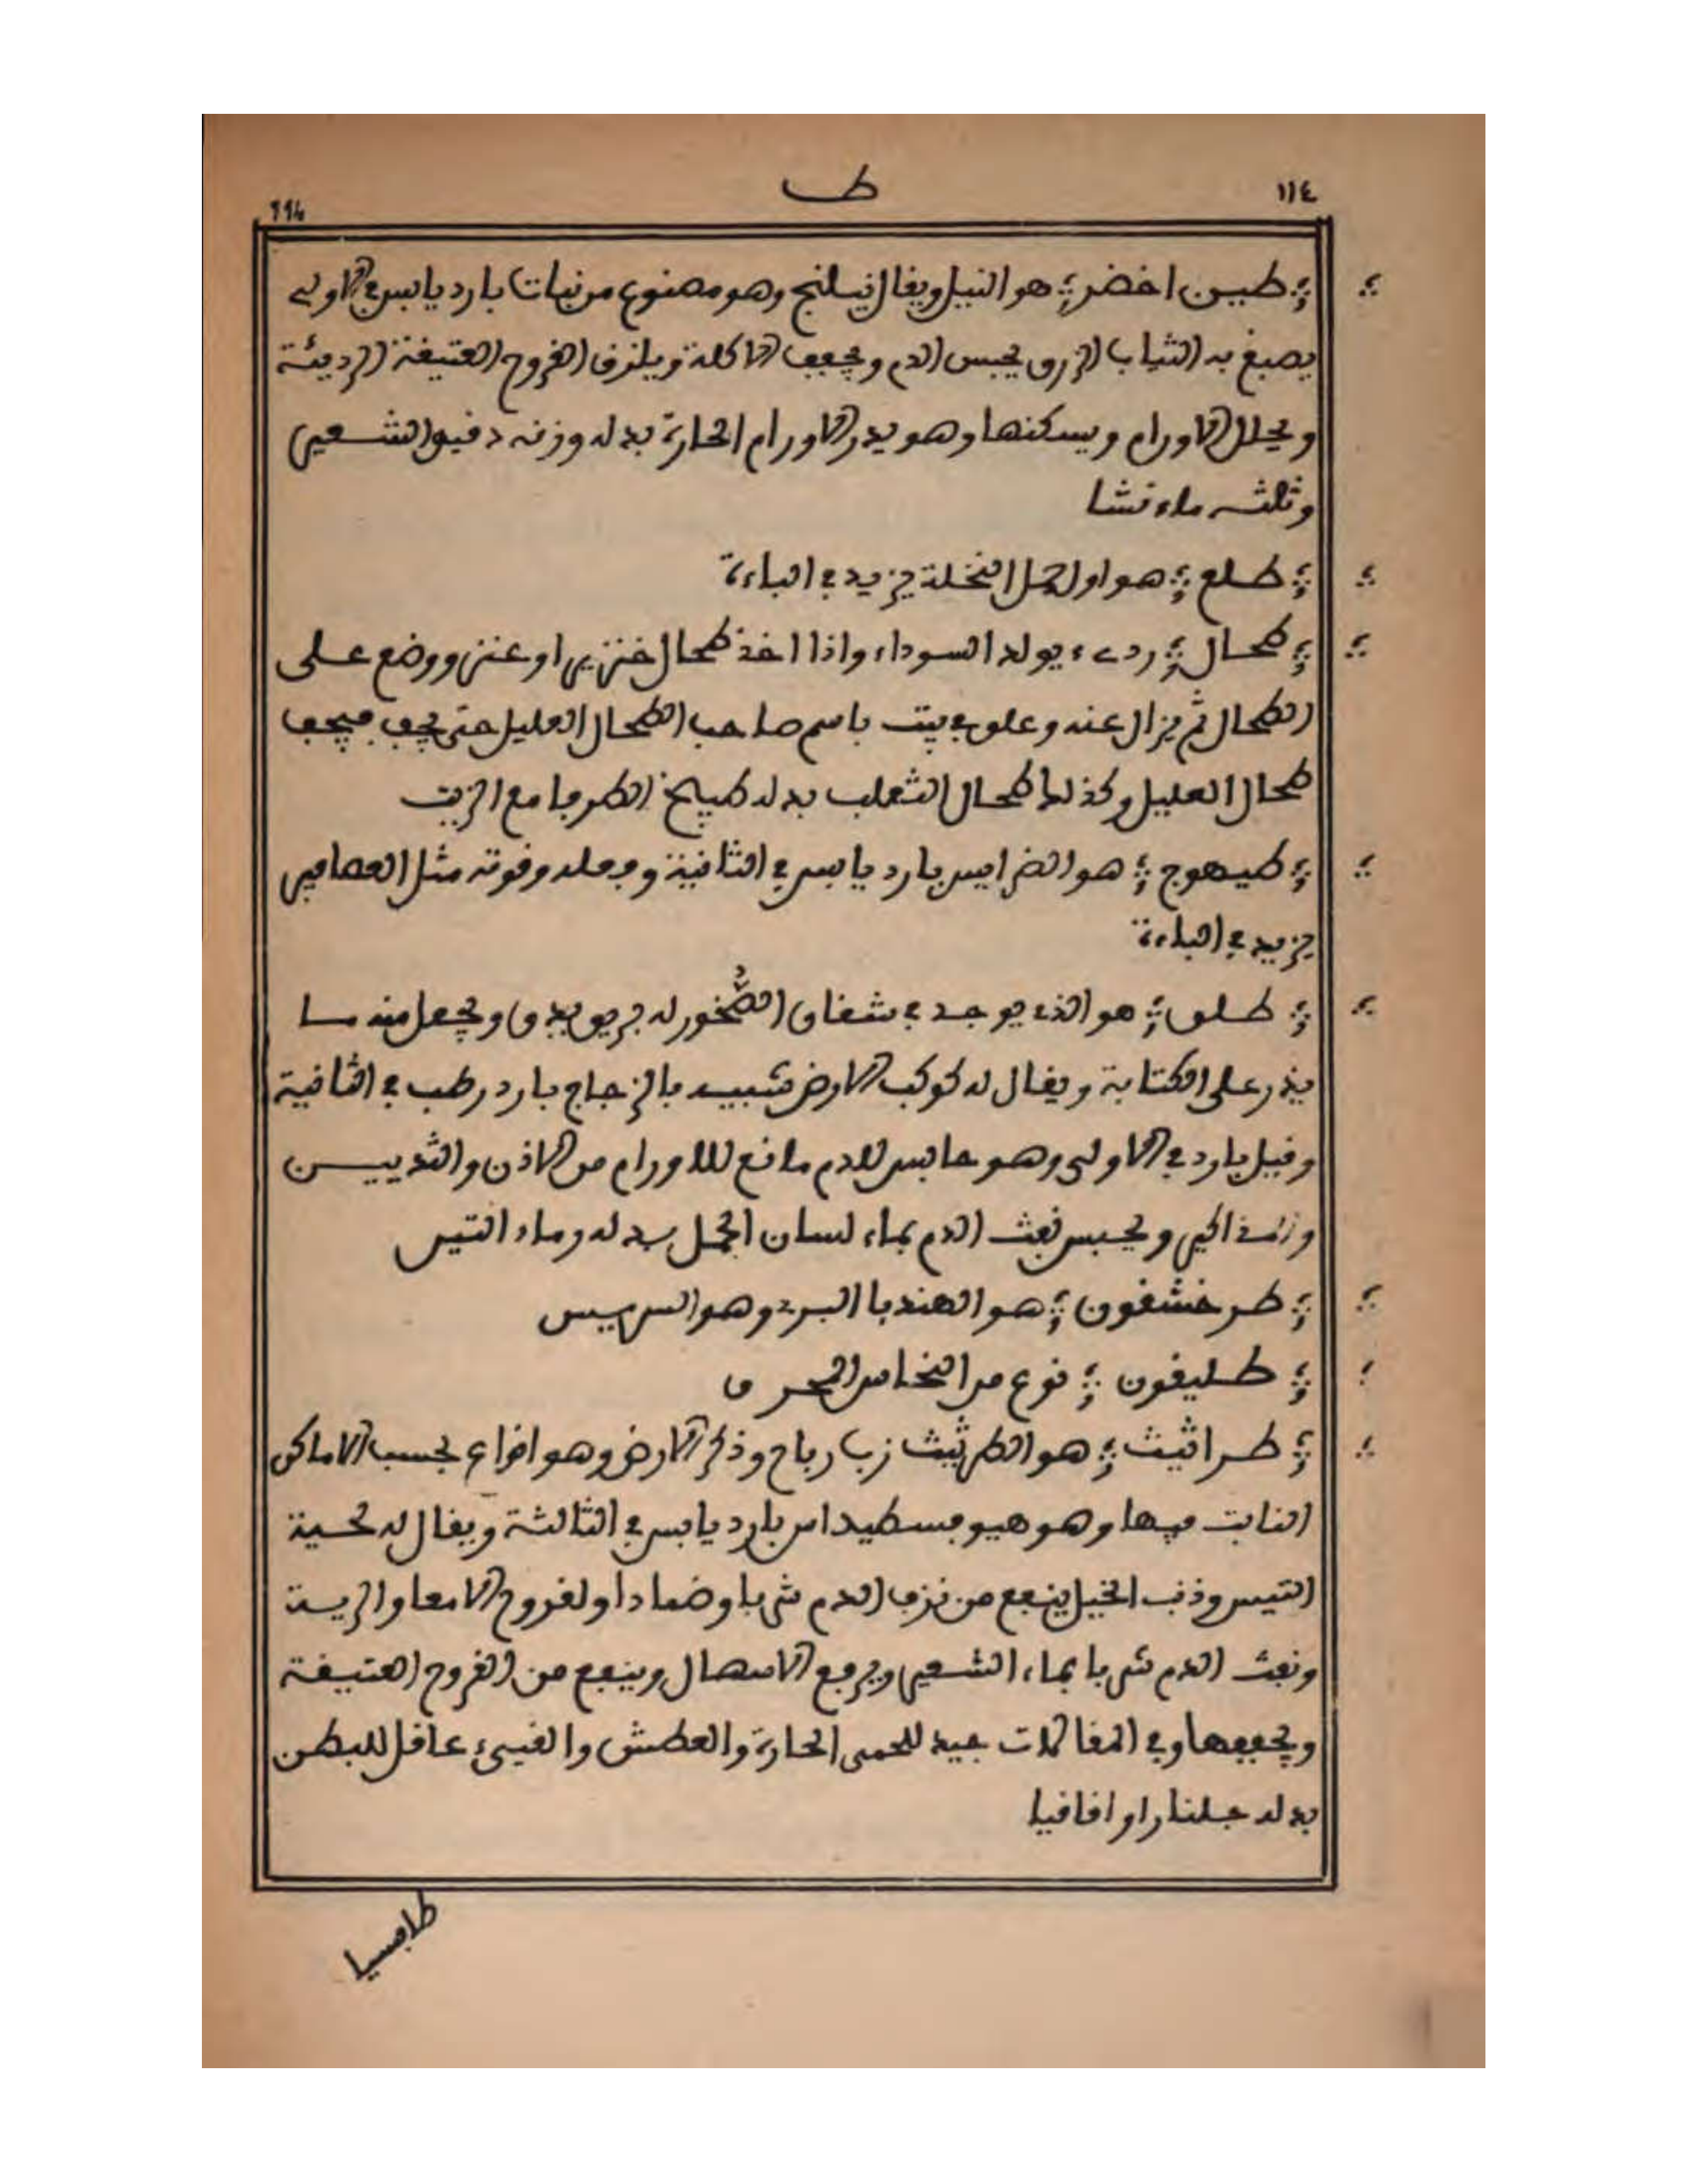 ١١٤
ط
114
طين اخضر هو النيل ويقال نيلنج وهو مصنوع من نبات بارد يابس في الاولى
يصبغ به الثياب الزرق يحبس الدم ويجفف الاكلة ويلزق القروح العتيقة الرديئة
ويحلل الاورام ويسكنها وهو يدر الاورام الحارة بدله وزنه دقيق الشعير
وثلثه ماء نشا
طلع هو اول حمل النخلة يزيد في الباءة
طحال ردىء يولد السوداء واذا اخذ طحال خنزير او عنز ووضع على
الطحال ثم يزال عنه وعلق في بيت باسم صاحب الطحال العليل حتى يجف فيجف
طحال العليل وكذلك طحال الثعلب بدله طبيخ الطرفا مع الزيت
طيهوج هو الضرايس بارد يابس في الثانية وفعله وقوته مثل العصافير
يزيد في الباءة
طلق هو الذي يوجد في شقاق الصخور له بريق يدق ويجعل منه ما
يذر على الكتابة ويقال له كوكب الارض شبيه بالزجاج بارد رطب في الثانية
وقيل بارد في الاولى وهو حابس للدم مانع للاورام من الاذن والثديين
ويحبس نفث الدم بماء لسان الحمل بدله رماد التين
طرخشقون هو الهندبا البري وهو السريس
طليقون نوع من النحاس المحرق
طراثيث هو الطرثيث زب رباح وذكر الارض وهو انواع بحسب الاماكن
النابت فيها وهو هيوفسطيداس بارد يابس في الثالثة ويقال له لحية
التيس وذنب الخيل ينفع من نزف الدم شربا وضمادا ولقروح الامعا والرية
ونفث الدم شربا بماء الشعير ويرفع الاسهال وينفع من القروح العتيقة
ويجففها وفي المقالات جيد للحمى الحارة والعطش والقيىء عاقل للبطن
بدله جلنار او اقاقيا
طافسيا